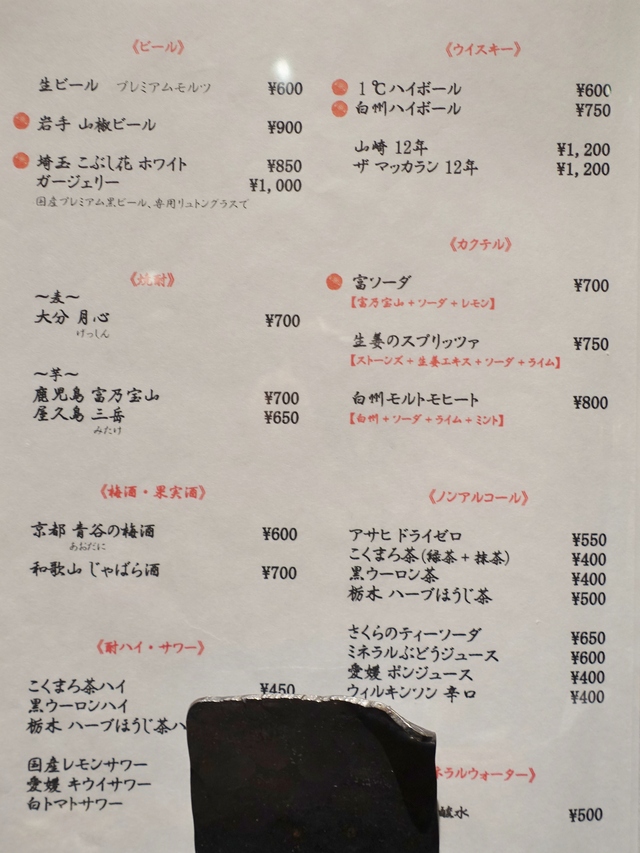 《ビール》
生ビール プレミアムモルツ ¥600
岩手 山椒ビール ¥900
埼玉 こぶし花 ホワイト ¥850
ガージェリー ¥1,000
国産プレミアム黒ビール、専用リュトングラスで
《焼酎》
～麦～
大分 月心 ¥700
げっしん
～芋～
鹿児島 富乃宝山 ¥700
屋久島 三岳 ¥650
みたけ
《梅酒・果実酒》
京都 青谷の梅酒 ¥600
あおだに
和歌山 じゃばら酒 ¥700
《酎ハイ・サワー》
こくまろ茶ハイ ¥450
黒ウーロンハイ
栃木 ハーブほうじ茶ハ
国産レモンサワー
愛媛 キウイサワー
白トマトサワー
《ウイスキー》
1℃ハイボール ¥600
白州ハイボール ¥750
山崎 12年 ¥1,200
ザ マッカラン 12年 ¥1,200
《カクテル》
富ソーダ ¥700
【富乃宝山+ソーダ+レモン】
生姜のスプリッツァ ¥750
【ストーンズ+生姜エキス+ソーダ+ライム】
白州モルトモヒート ¥800
【白州+ソーダ+ライム+ミント】
《ノンアルコール》
アサヒ ドライゼロ ¥550
こくまろ茶(緑茶+抹茶) ¥400
黒ウーロン茶 ¥400
栃木 ハーブほうじ茶 ¥500
さくらのティーソーダ ¥650
ミネラルぶどうジュース ¥600
愛媛 ポンジュース ¥400
ウィルキンソン 辛口 ¥400
ネラルウォーター》
酸水 ¥500